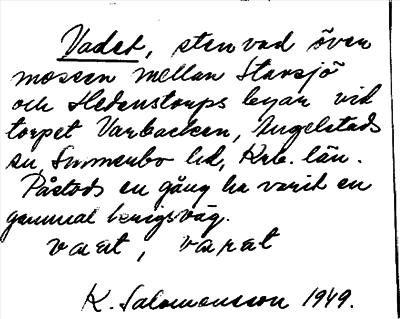 Vadet, stenvad över
mossen mellan Starsjö
och Hedenstorps byar vid
torpet Varbacken, Angelstads
sn, Sunnerbo hd, Krb. län.
Påstods en gång ha varit en
gammal kungsväg.
vaət, varət
K. Salomonsson 1949.